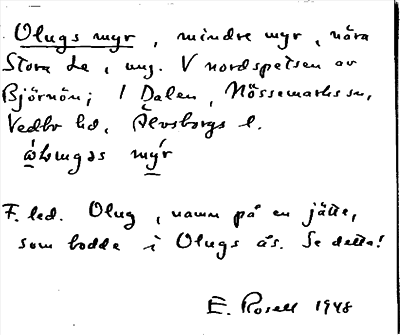 Olugs myr, mindre myr, nära
Stora Le, ung. V nordspetsen av
Björnön; i Dalen, Nössemarks sn,
Vedbo hd, Älvsborgs l.
myr
F. led. Olug, namn på en jätte,
som bodde i Olugs ås. Se detta!
E. Rosell 1948